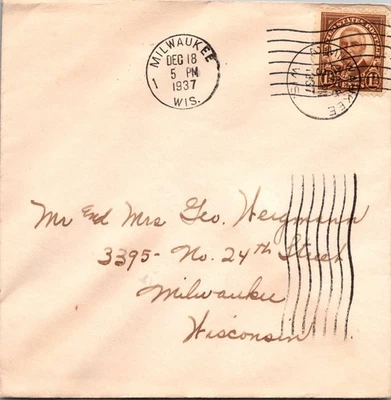 MILWAUKEE
1
DEC 18
5 PM
1937
WIS.
UNITED STATES POSTAGE
Mr End Mrs Geo. Wergmann
3395- No. 24th Street
Milwaukee
Wisconsin